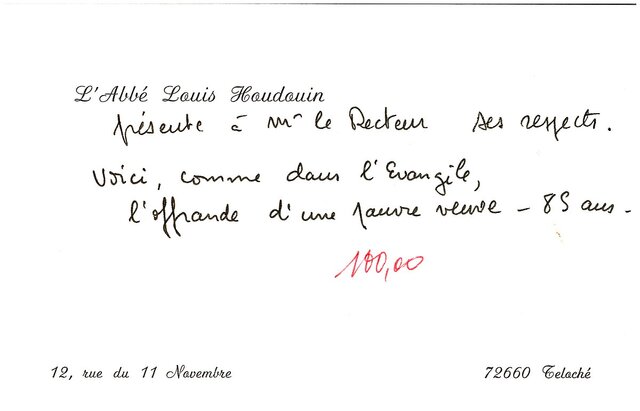 L'Abbé Louis Houdouin
présente à Mr le Recteur ses respects.
Voici, comme dans l'Evangile,
l'offrande d'une pauvre veuve - 85 ans -
100,00
12, rue du 11 Novembre
72660 Teloché